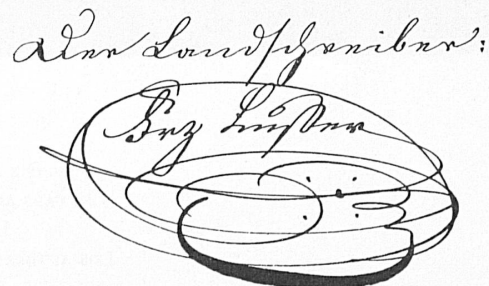 Der Landschreiber:
Frz Lusser